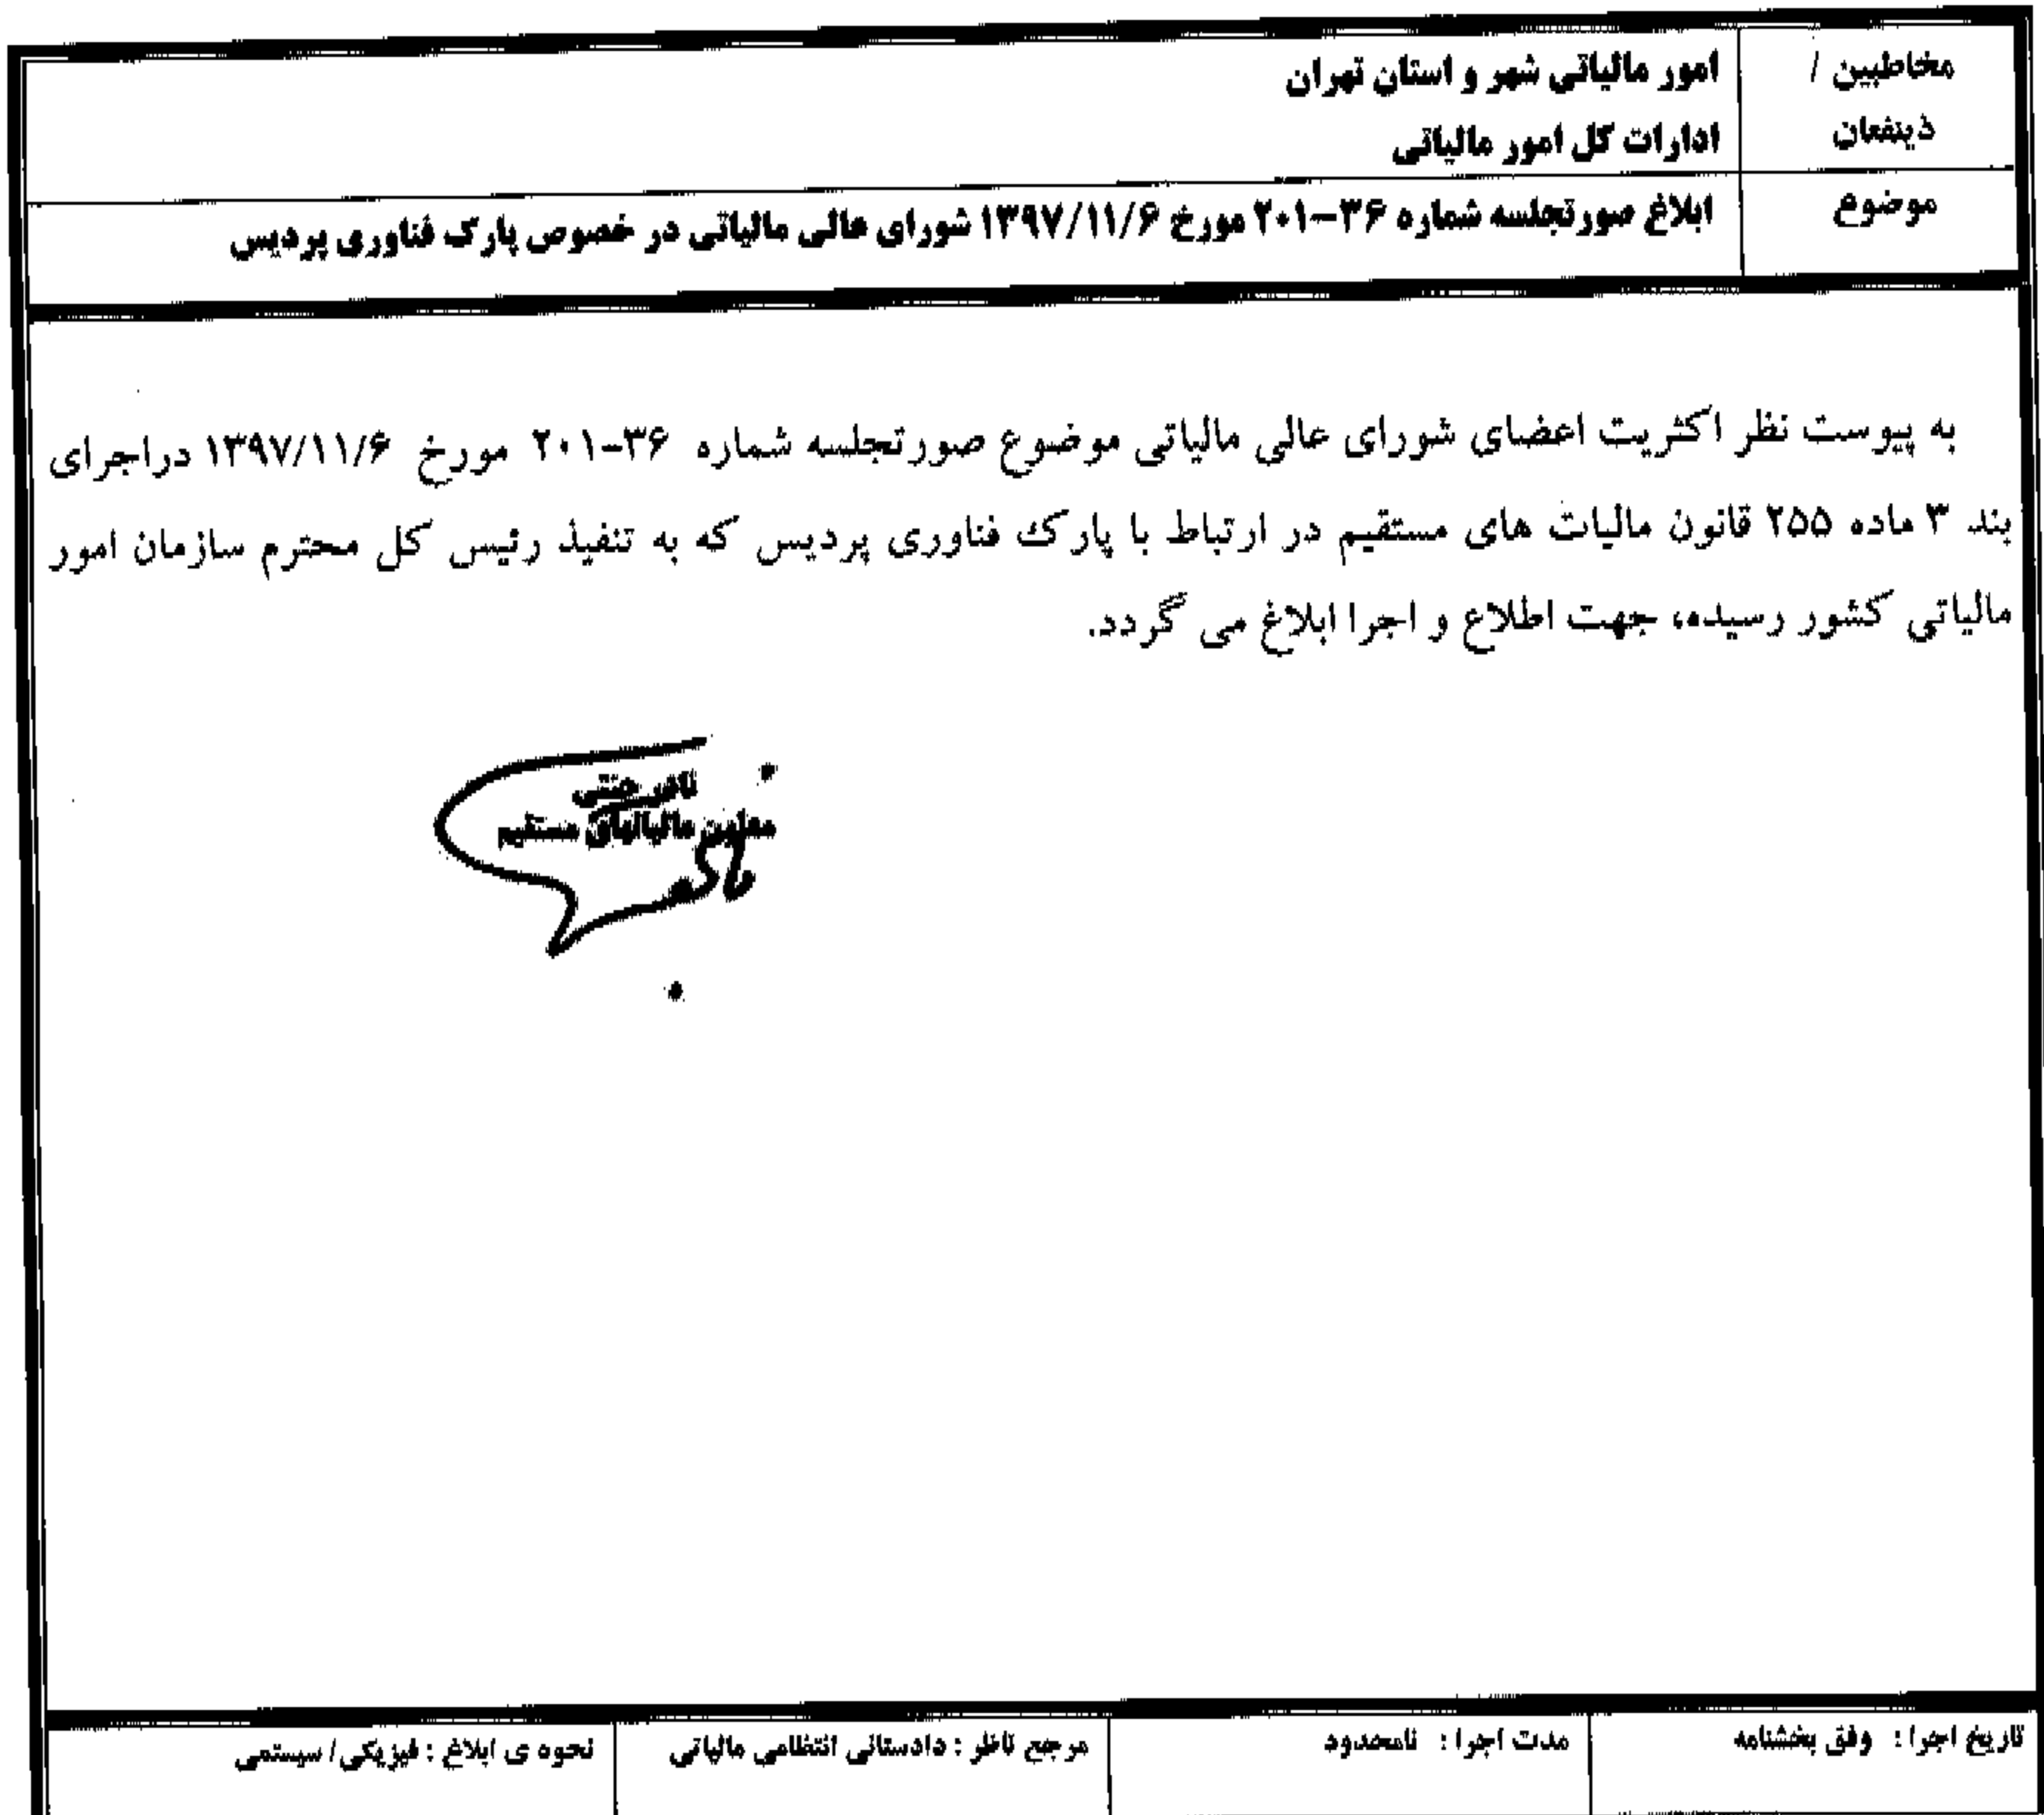 مخاطبین /
ذینفعان
امور مالیاتی شهر و استان تهران
ادارات کل امور مالیاتی
موضوع
ابلاغ صورتجلسه شماره ۳۶-۲۰۱ مورخ ۱۳۹۷/۱۱/۶ شورای عالی مالیاتی در خصوص پارک فناوری پردیس
به پیوست نظر اکثریت اعضای شورای عالی مالیاتی موضوع صورتجلسه شماره ۳۶-۲۰۱ مورخ ۱۳۹۷/۱۱/۶ دراجرای
بند ۳ ماده ۲۵۵ قانون مالیات های مستقیم در ارتباط با پارک فناوری پردیس که به تنفیذ رئیس کل محترم سازمان امور
مالیاتی کشور رسیده، جهت اطلاع و اجرا ابلاغ می گردد.
معاون مالیاتهای مستقیم
تاریخ اجرا : وفق بخشنامه
مدت اجرا : نامحدود
مرجع ناظر : دادستانی انتظامی مالیاتی
نحوه ی ابلاغ : فیزیکی/ سیستمی